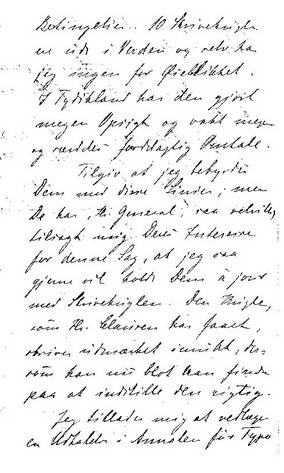 Betingelser. 10 Skrivekugler
er ude i Verden og selv har
jeg ingen for Øieblikket.
I Tydskland har den gjort
megen Opsigt og vakt megen
og særdeles fordelagtig Omtale.
Tilgiv at jeg bebyrder
Dem med disse Linier; men
De har, Hr. General, saa velvillig
tilsagt mig Deres Interesse
for denne Sag, at jeg saa
gjerne vil holde Dem à jour
med Skrivekuglen. Den Kugle,
som Hr. Clausen har faaet,
skriver udmærket smukt, der-
som han nu blot kan finde
paa at indstille den rigtig.
Jeg tillader mig at vedlægge
en Udtalelse i Annalen für Typo